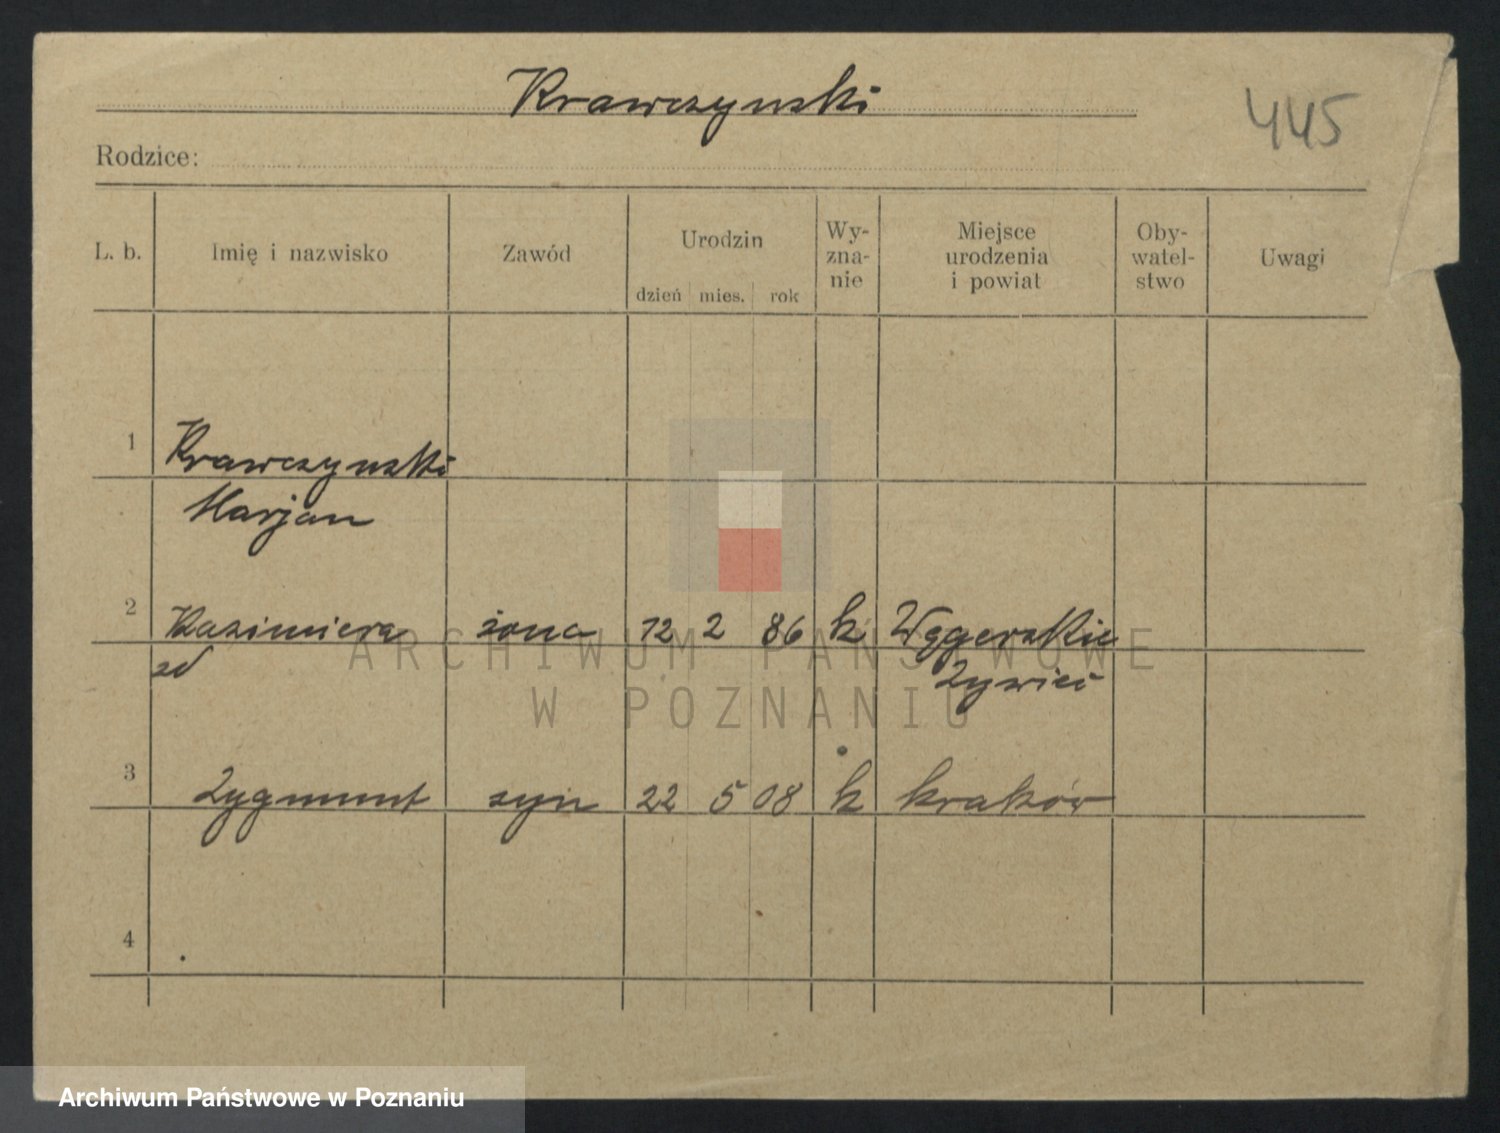 Krawczynski
445
Rodzice:
L. b. Imię i nazwisko Zawód Urodzin dzień mies. rok Wy-zna-nie Miejsce urodzenia i powiat Oby-watel-stwo Uwagi
1 Krawczynski
Marjan
2 Kazimiera żona 12 2 86 k Węgerskie
Żywiec
3 Zygmunt syn 22 5 08 k Kraków
4
ARCHIWUM PAŃSTWOWE
W POZNANIU
Archiwum Państwowe w Poznaniu